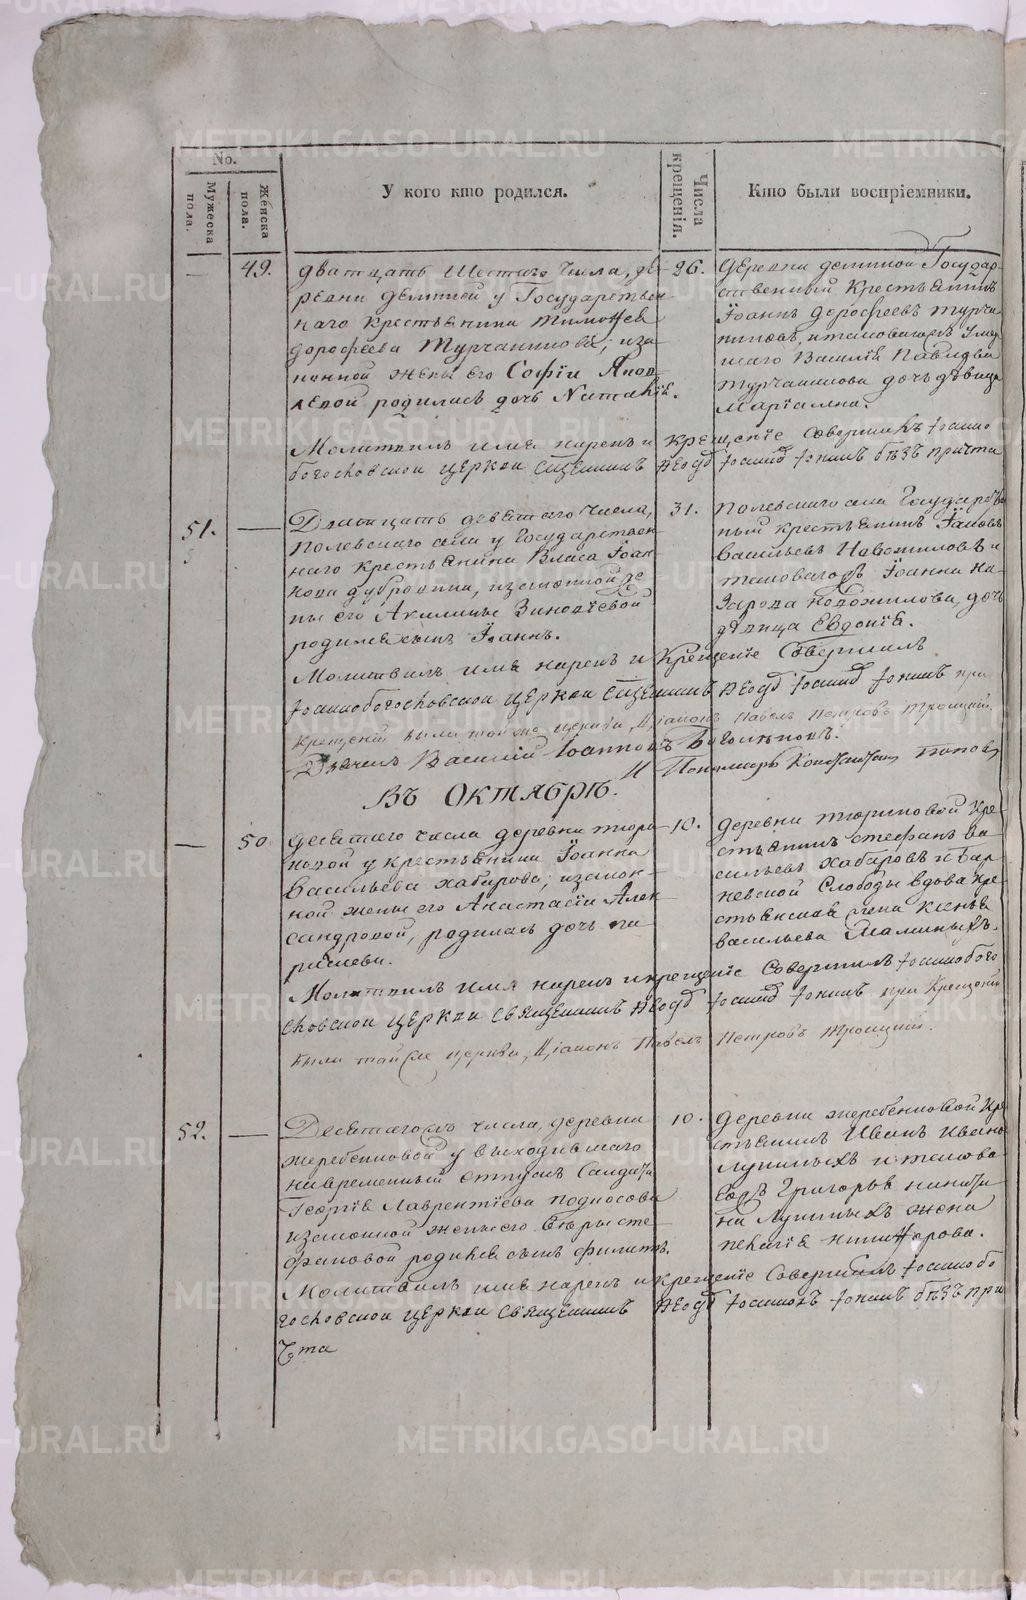 No.
Мужеска пола.
Женска пола.
У кого кто родился.
Числа крещенія.
Кто были воспріемники.
49.
дватцать шестаго числа, де-
ревни деминой у Государствен
наго крестьянина Тимоѳея
дорофеева Турчанинова; изъ
конной жены его Софіи Яков
левой родилась дочь Наталія.
26.
Деревни деминой Государ-
ственный крестьянинъ
Іоаннъ дорофеевъ турча
ниновъ, и таковагожъ умер
шаго Василія Павлова
турчанинова дочь дѣвица
Маріамна.
Молитвилъ имя нареч и крещеніе совершилъ Іоанно
богословской церкви священникъ Ѳеод
безъ причта
51.
Дватцать девятаго числа,
Полевскаго села у Государствен
наго крестьянина Власа Іоан
нова дубровина, изаконной же
ны его Акилины Зиновіевой
родился сынъ Іоаннъ.
31.
Полевскаго села Государстве
ный крестьянинъ Іаковъ
васильевъ Новожиловъ и
таковагожъ Іоанна На-
зарова новожилова, дочь
дѣвица Евдокія.
Молитвилъ имя нареч и крещеніе совершилъ
Іоаннобогословской церкви священникъ Ѳеод при
крещеніи были тойже церкви, Діаконъ Павелъ Петровъ Троицкій.
Дьячекъ Василій Іоанновъ Боголѣповъ.
и Пономарь Константинъ Поповъ
Въ Октябрѣ.
50
десятаго числа деревни тюри
ковой у крестьянина Іоанна
васильева хабарова; изакон-
ной жены его Анастасіи Алек
сандровой, родилась дочь па
раскева.
10.
деревни тюриковой кре-
стьянинъ стефанъ ва
сильевъ хабаровъ и бар
невской слободы вдова кре-
стьянская жена ксенія
васильева Маминыхъ.
Молитвилъ имя нареч и крещеніе совершилъ Іоаннобого
словской церкви священникъ Ѳеод при крещеніи
были тойже церкви, Діаконъ Павелъ Петровъ Троицкій.
52.
Десятагожъ числа, деревни
жеребенковой у выходившаго
навременный отпускъ Солдата
Георгія Лаврентіева подкосова
изаконной жены его вѣры сте
фановой родился сынъ филиппъ.
10.
деревни жеребенковой кре
стьянинъ Иванъ Ивано
Лукиныхъ и таково
гожъ Григорья никити
на Лукиныхъ жена
пелагія никифорова.
Молитвилъ имя нареч и крещеніе совершилъ Іоаннобо
гословской церкви священникъ Ѳеод безъ при
чта
METRIKI.GASO-URAL.RU